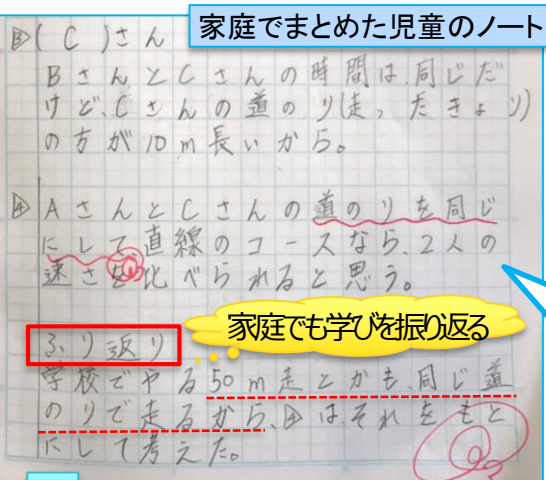 家庭でまとめた児童のノート
3 ( C )さん
BさんとCさんの時間は、同じだ
けど、Cさんの道のり(走ったきょり)
の方が10m長いから。
4 AさんとCさんの道のりを同じ
にして、直線のコースなら、2人の
速さを比べられると思う。
家庭でも学びを振り返る
ふり返り
学校でやる50m走とかも、同じ道
のりで走るから、4は、それをもと
にして考えた。